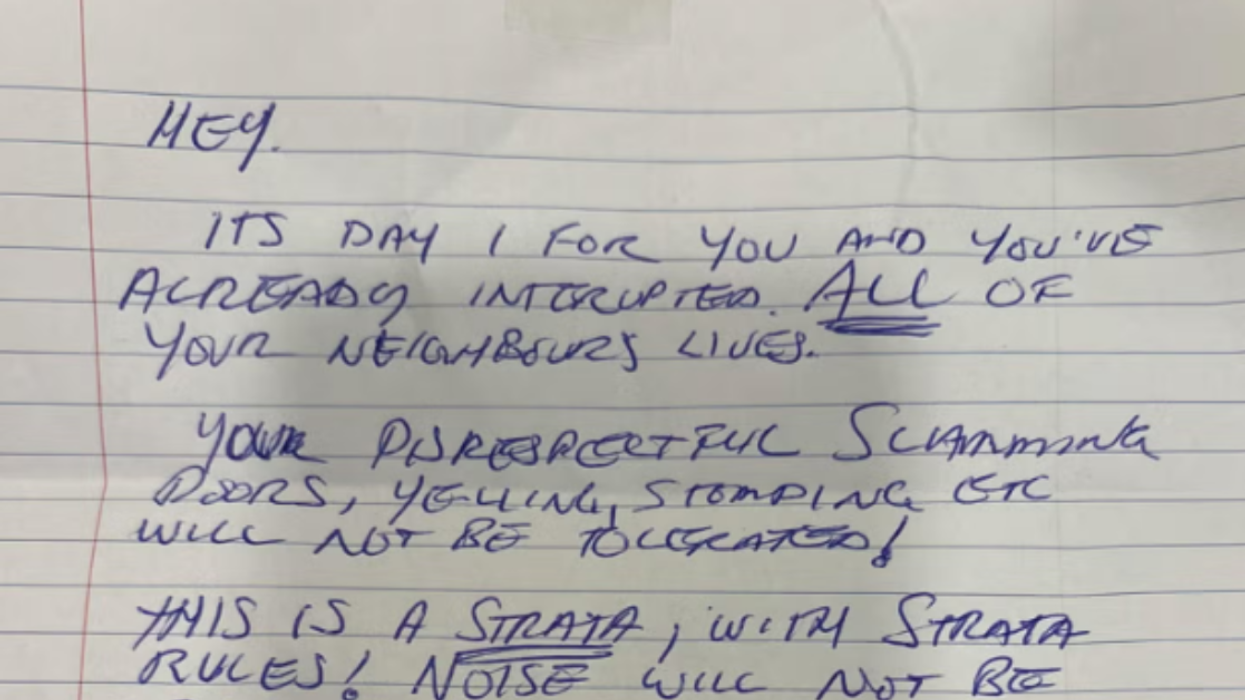 HEY.
ITS DAY 1 FOR YOU AND YOU'VE
ALREADY INTERUPTED. ALL OF
YOUR NEIGHBOURS LIVES.
YOUR DISRESPECTFUL SLAMMING
DOORS, YELLING, STOMPING ETC
WILL NOT BE TOLERATED!
THIS IS A STRATA, WITH STRATA
RULES! NOISE WILL NOT BE